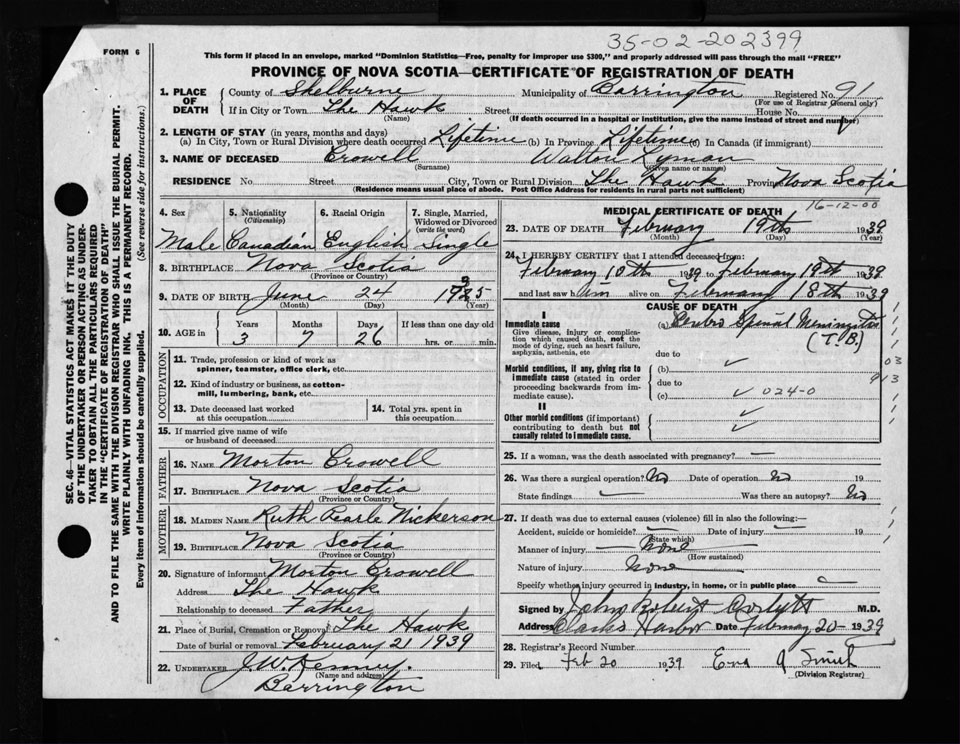 35-02-202399
FORM 6
This form if placed in an envelope, marked "Dominion Statistics—Free, penalty for improper use $300," and properly addressed will pass through the mail "FREE"
PROVINCE OF NOVA SCOTIA—CERTIFICATE OF REGISTRATION OF DEATH
1. PLACE OF DEATH County of Shelburne Municipality of Barrington Registered No. 91
(For use of Registrar General only)
If in City or Town The Hawk Street House No.
(Name) (If death occurred in a hospital or institution, give the name instead of street and number)
2. LENGTH OF STAY (in years, months and days)
(a) In City, Town or Rural Division where death occurred Lifetime (b) In Province Lifetime (c) In Canada (if immigrant)
3. NAME OF DECEASED Crowell Walton Lyman
(Surname) (Given name or names)
RESIDENCE No Street City, Town or Rural Division The Hawk Province Nova Scotia
(Residence means usual place of abode. Post Office Address for residents in rural parts not sufficient)
4. Sex 5. Nationality (Citizenship) 6. Racial Origin 7. Single, Married, Widowed or Divorced (write the word)
Male Canadian English Single
8. BIRTHPLACE Nova Scotia
(Province or Country)
9. DATE OF BIRTH June 24
(Month) (Day) (Year)
10. AGE in Years Months Days If less than one day
3 7 26 hrs. or min.
OCCUPATION
11. Trade, profession or kind of work as spinner, teamster, office clerk, etc.
12. Kind of industry or business, as cotton-mill, lumbering, bank, etc.
13. Date deceased last worked at this occupation
14. Total yrs. spent in this occupation
15. If married give name of wife or husband of deceased
FATHER
16. NAME Morton Crowell
17. BIRTHPLACE Nova Scotia
(Province or Country)
MOTHER
18. MAIDEN NAME Ruth Pearle Nickerson
19. BIRTHPLACE Nova Scotia
(Province or Country)
20. Signature of informant Morton Crowell
Address The Hawk
Relationship to deceased Father
21. Place of Burial, Cremation or Removal The Hawk
Date of burial or removal February 21 1939
22. UNDERTAKER J. W. Kenney.
(Name and address)
Barrington
16-12-00
MEDICAL CERTIFICATE OF DEATH
23. DATE OF DEATH February 19th 1939
(Month) (Day) (Year)
24. I HEREBY CERTIFY that I attended deceased from:
February 10th 1939 to February 19th 1939
and last saw him alive on February 18th 1939
CAUSE OF DEATH
I
Immediate cause
Give disease, injury or complication which caused death, not the mode of dying, such as heart failure, asphyxia, asthenia, etc
(a) Cerebro Spinal Meningitis
(T.B.)
due to
Morbid conditions, if any, giving rise to immediate cause (stated in order proceeding backwards from immediate cause).
(b)
due to
(c) 024-0
II
Other morbid conditions (if important) contributing to death but not causally related to immediate cause.
25. If a woman, was the death associated with pregnancy? —
26. Was there a surgical operation? No Date of operation No 19
State findings — Was there an autopsy? No
27. If death was due to external causes (violence) fill in also the following:—
Accident, suicide or homicide? — Date of injury — 19
(State which)
Manner of injury None
(How sustained)
Nature of injury None
Specify whether injury occurred in industry, in home, or in public place
Signed by John Robert M.D.
Address Clarks Harbor Date February 20 - 1939
28. Registrar's Record Number
29. Filed Feb 20 1939 Smith
(Division Registrar)
SEC. 46—VITAL STATISTICS ACT MAKES IT THE DUTY
OF THE UNDERTAKER OR PERSON ACTING AS UNDER-
TAKER TO OBTAIN ALL THE PARTICULARS REQUIRED
IN THE "CERTIFICATE OF REGISTRATION OF DEATH"
AND TO FILE THE SAME WITH THE DIVISION REGISTRAR WHO SHALL ISSUE THE BURIAL PERMIT.
WRITE PLAINLY WITH UNFADING INK. THIS IS A PERMANENT RECORD.
Every item of information should be carefully supplied. (See reverse side for instructions.)